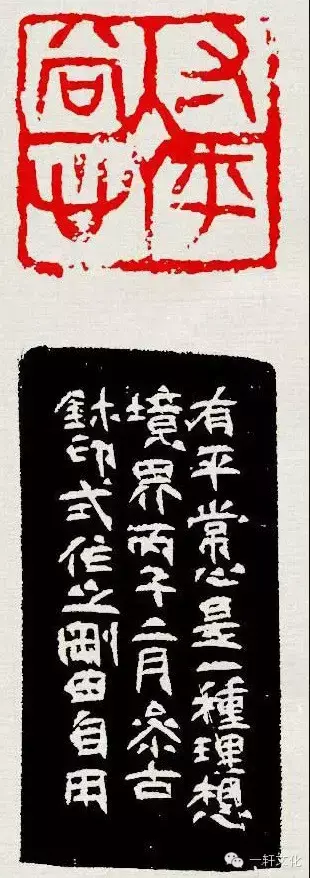 有平
常心
有平常心是一種理想
境界丙子二月參古
鉨印式作之剛田自用
一轩文化